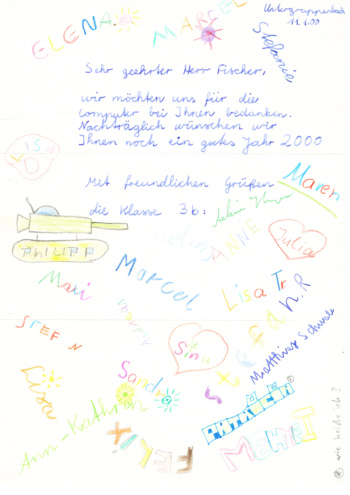 Untergruppenbach
11.1.00
ELENA
MARCEL
Stefanie
Sehr geehrter Herr Fischer,
wir möchten uns für die
Computer bei Ihnen bedanken.
Nachträglich wünschen wir
Ihnen noch ein gutes Jahr 2000
LISA
D
Mit freundlichen Grüßen
Maren
die Klasse 3b:
PHILIPP
ANNE
Julia
Maxi
Marcel
Lisa Tr
N.R
STEFAN
Sina
Matthias
Lisa
Sandra
Ann-Kathrin
PATRICK
FELIX
MEHMET
wie heiße ich?